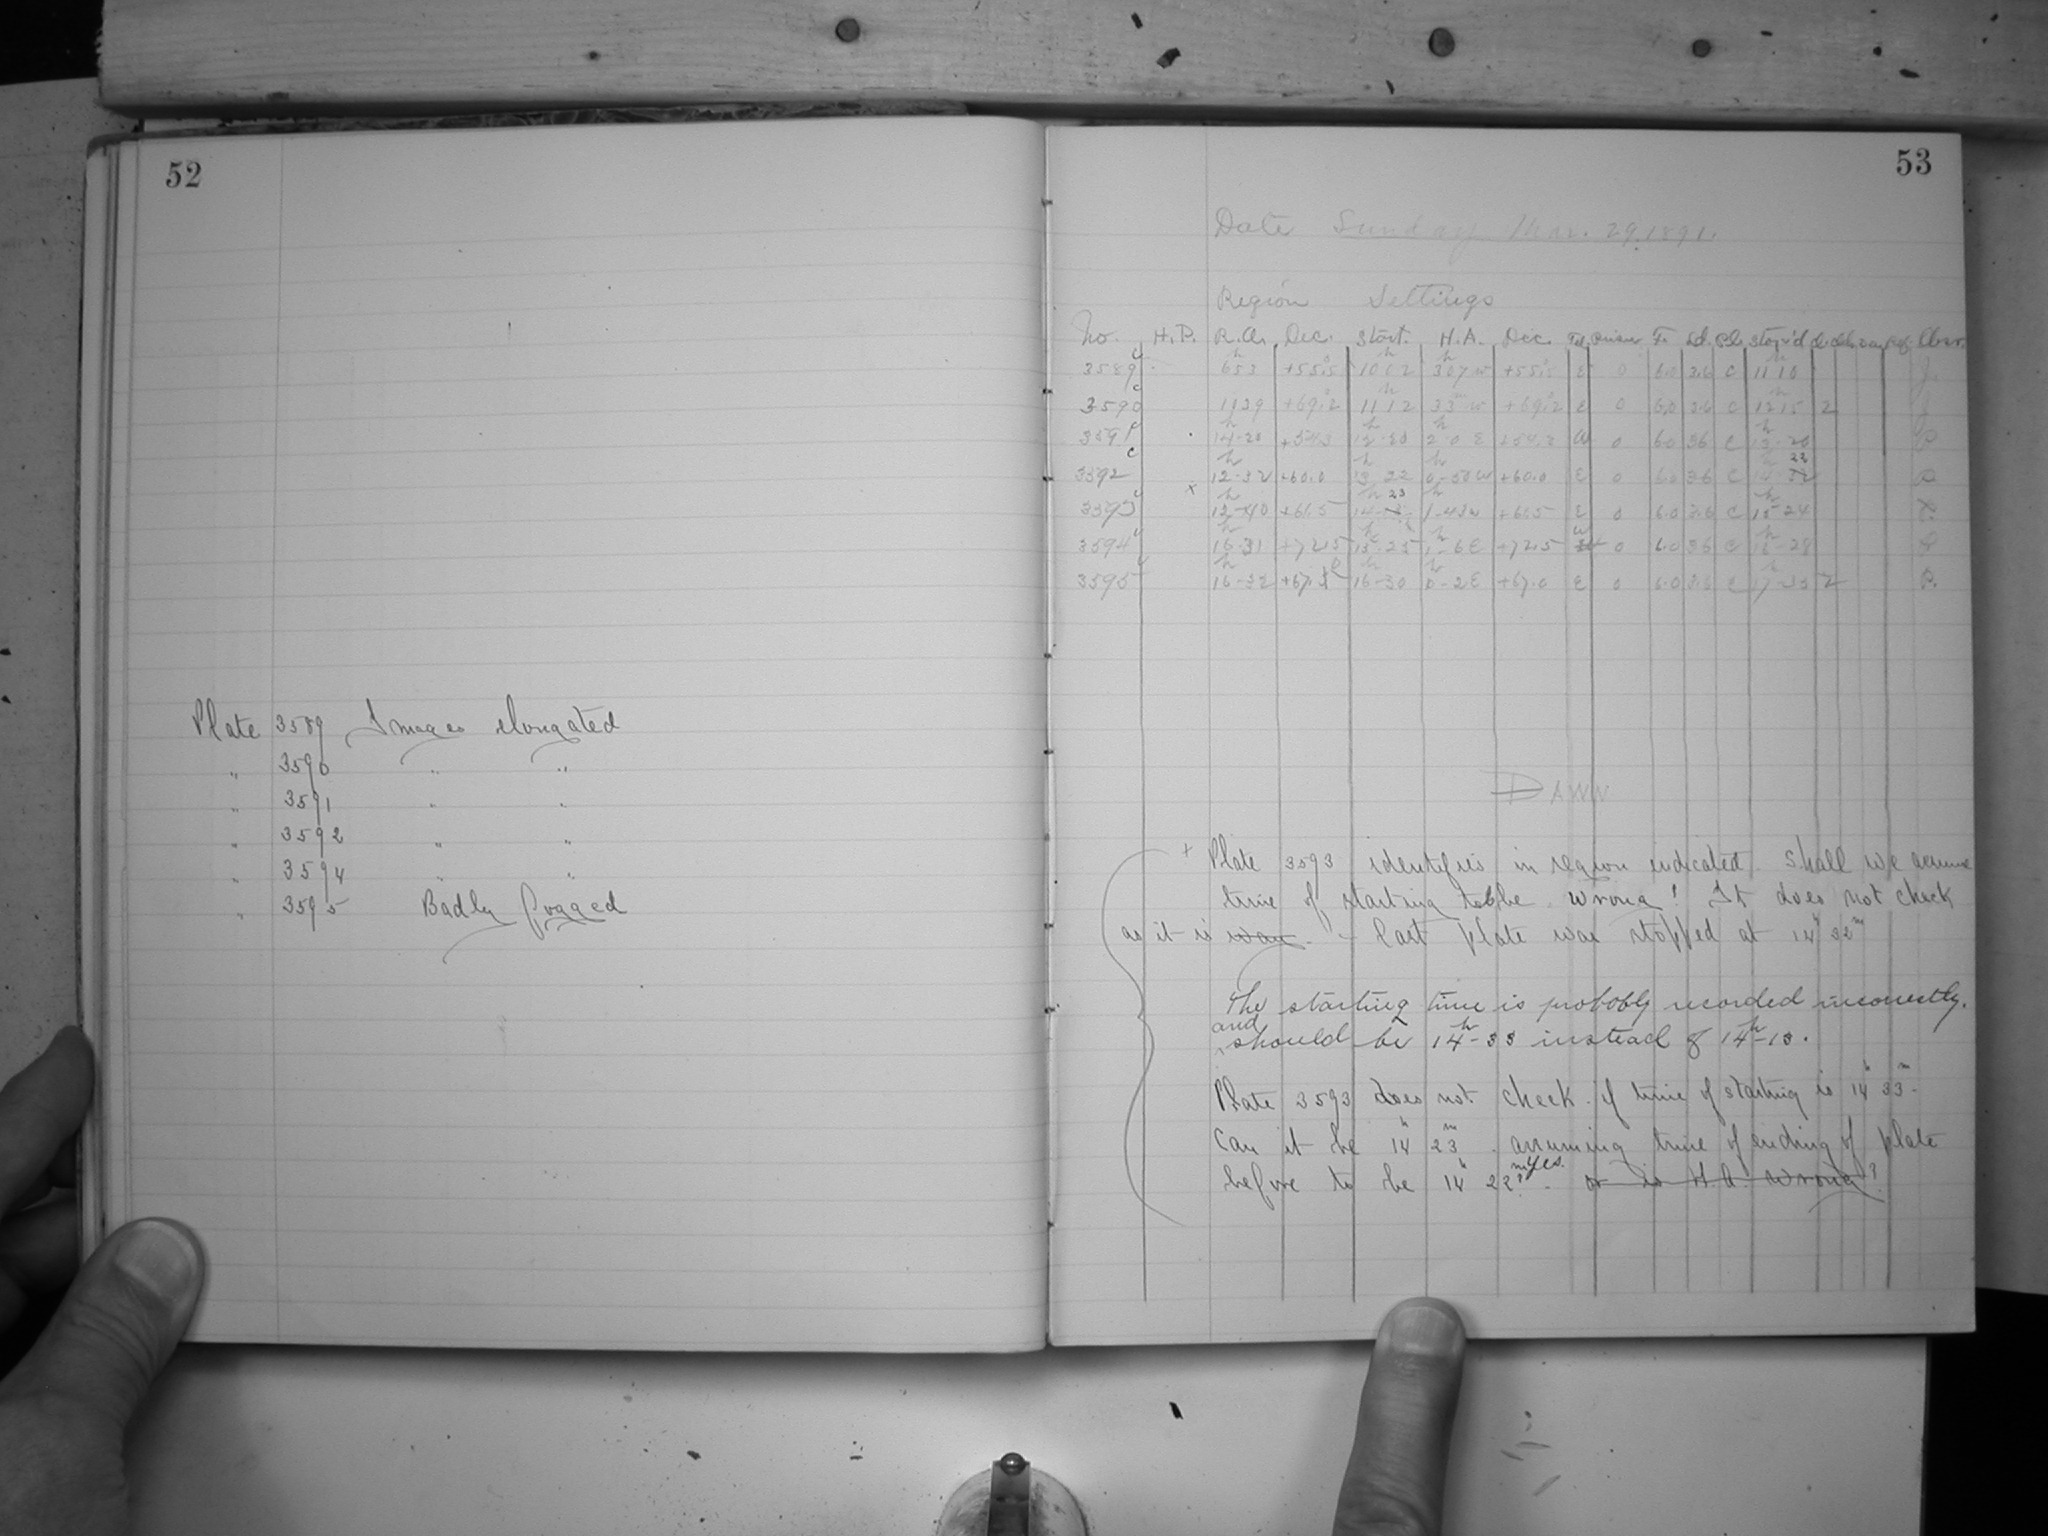 52
Plate 3589 Images elongated
" 3590 " "
" 3591 " "
" 3592 " "
" 3594 " "
" 3595 Badly fogged
53
Date Sunday Mar. 29. 1891.
Region Settings
No. H.P. R.A. Dec. Start. H.A. Dec. F. Pl. Stop'd Obsr.
3589 6 53 +55.5 10 02 3 07 W +55.5 E 0 6.0 3.6 C 11 10 J.
3590 11 39 +69.2 11 12 33 W +69.2 E 0 6.0 3.6 C 12 15 2 J
3591 14-20 +54.3 12-20 2-0 E +54.3 W 0 6.0 3.6 C 13-20
3592 12-32 +60.0 13 22 0-50 W +60.0 E 0 6.0 3.6 C 14-32 22
x 3593 +61.5 14- 23 1-43 W +61.5 E 0 6.0 3.6 C 15-24
3594 16-31 +72.5 15-25 1-6 E +72.5 W 0 6.0 3.6 C 16-28
3595 16-32 +67. 0 16-30 0-2 E +67.0 E 0 6.0 3.6 C 17-33 2
DAWN
+ Plate 3593 identifies in region indicated. Shall we assume
time of starting to be wrong! It does not check
as it is - last plate was stopped at 14h 32m
The starting time is probobly recorded incorrectly.
and should be 14h-33 instead of 14h-13.
Plate 3593 does not check if time of starting is 14h 33m.
Can it be 14h 23m. assuming time of ending of plate
before to be 14h 22m? Yes. or is H.A. wrong?